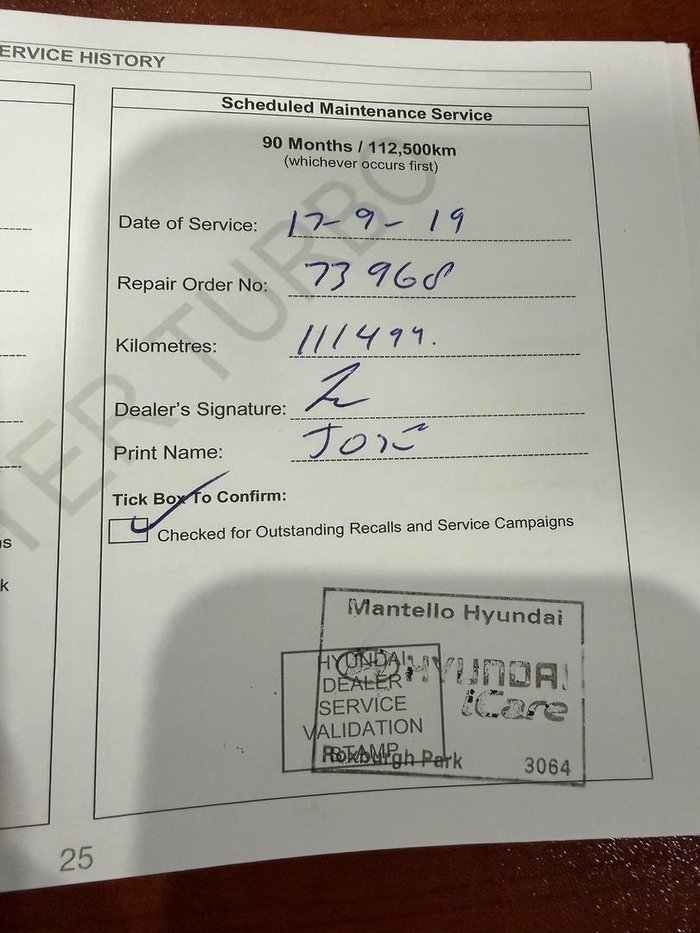 ERVICE HISTORY
Scheduled Maintenance Service
90 Months / 112,500km
(whichever occurs first)
Date of Service: 17-9-19
Repair Order No: 73968
Kilometres: 111499.
Dealer's Signature:
Print Name: JOSE
Tick Box To Confirm:
Checked for Outstanding Recalls and Service Campaigns
TER TURBO
s
k
Mantello Hyundai
HYUNDAI
iCare
Roxburgh Park 3064
HYUNDAI
DEALER
SERVICE
VALIDATION
STAMP
25